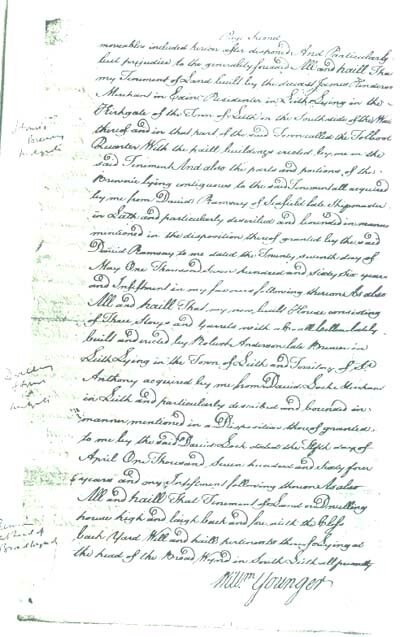 Page Second
moveables included herein after disponed And Particularly
but prejudice to the generality foresaid All and haill That
my Tenement of Land built by the deceast James Henderson
Merchant in Edinr. Residenter in Leith Lying in the
Kirkgate of the Town of Leith on the South side of the
thereof and in that part of the said Town called the Tolbooth
Quarter With the haill buildings erected by me on the
said Tenement And also the parts and portions of the
Brewrie lying contiguous to the said Tenement all acquired
by me from David Ramsay of Seafield late Shipmaster
in Leith and particularly described and bounded in manner
mentioned in the disposition thereof granted by the said
David Ramsay to me dated the Twenty seventh day of
May One Thousand Seven hundred and Sixty Six years
and Infeftment in my favours following thereon As also
All and haill That my new built House consisting
of Three Storys and Garrets with a small lately
built and erected by Anderson late Brewer in
Leith Lying in the Town of Leith and Territory of St
Anthony acquired by me from David Loch Merchant
in Leith and particularly described and bounded in
manner mentioned in a Disposition thereof granted
to me by the said David Loch dated the fifth day of
April One Thousand Seven hundred and sixty four
years and my Infeftment following thereon As also
All and haill That Tenement of Land dwelling
house high and laigh back and fore with the Closs
back Yard Well and haill pertinents thereof Lying at
the head of the Broad Wynd in South Leith all presently
Willm Younger